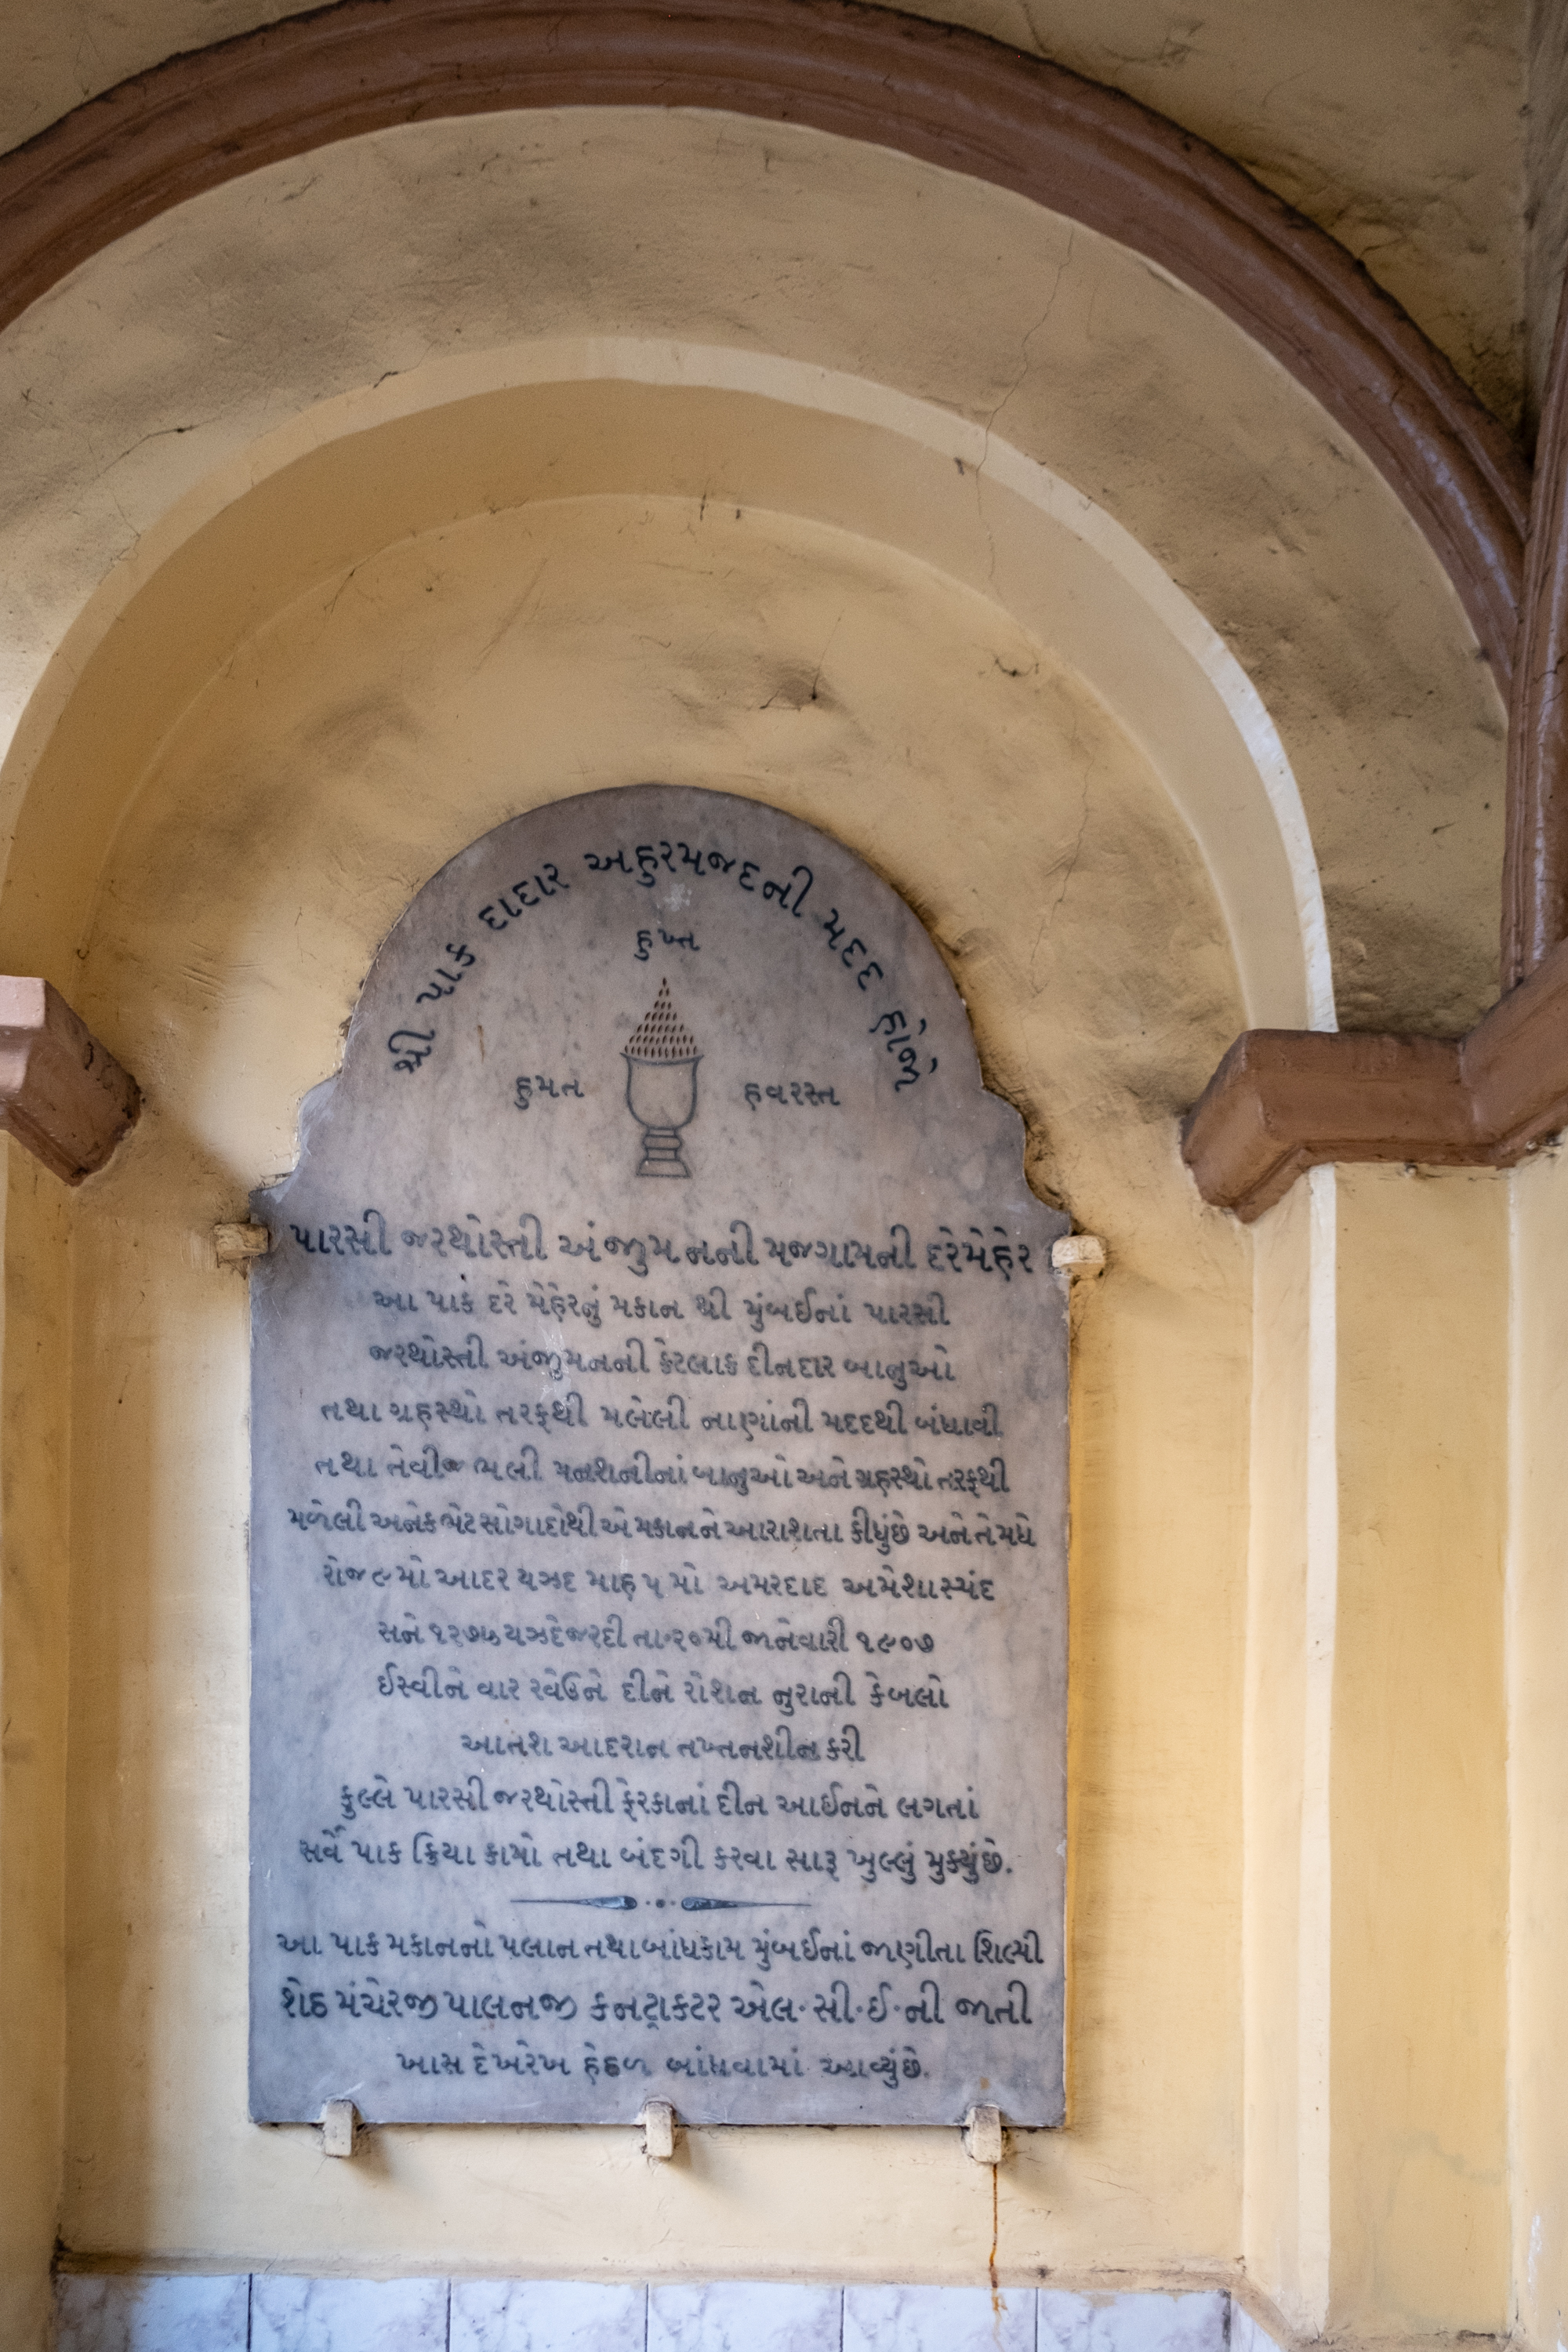 શ્રી પાક દાદાર અહુરમજદની મદદ હોજો
હુખ્ત
હુમત
હવરસ્ત
પારસી જરથોસ્તી અંજુમનની મજગામની દરેમેહેર
આ પાક દરે મેહેરનું મકાન શ્રી મુંબઈનાં પારસી
જરથોસ્તી અંજીમનની કેટલાક દીનદાર બાનુઓ
તથા ગ્રહસ્થો તરફથી મલેલી નાણાંની મદદથી બંધાવી
તથા તેવીજ ભલી મનશનીનાં બાનુઓ અને ગ્રહસ્થો તરફથી
મળેલી અનેક ભેટ સોગાદોથી એ મકાનને આરાશતા કીધુંછે અને તે મધે
રોજ ૯ મો આદર યઝદ માહ ૫ મો અમરદાદ અમેશાસ્પંદ
સને ૧૨૭૬ યઝદેજરદી તા·૨૦મી જાનેવારી ૧૯૦૭
ઈસ્વીને વાર રવેઉને દીને રોશન નુરાની કેબલો
આતશ આદરાન તખ્તનશીન કરી
કુલ્લે પારસી જરથોસ્તી ફેરકાનાં દીન આઈનને લગતાં
સર્વે પાક ક્રિયા કામો તથા બંદગી કરવા સારૂ ખુલ્લું મુક્યુંછે.
આ પાક મકાનનો પલાન તથા બાંધકામ મુંબઈનાં જાણીતા શિલ્પી
શેઠ મંચેરજી પાલનજી કનટ્રાકટર એલ·સી·ઈ·ની જાતી
ખાસ દેખરેખ હેઠળ બાંધવામાં આવ્યુંછે.